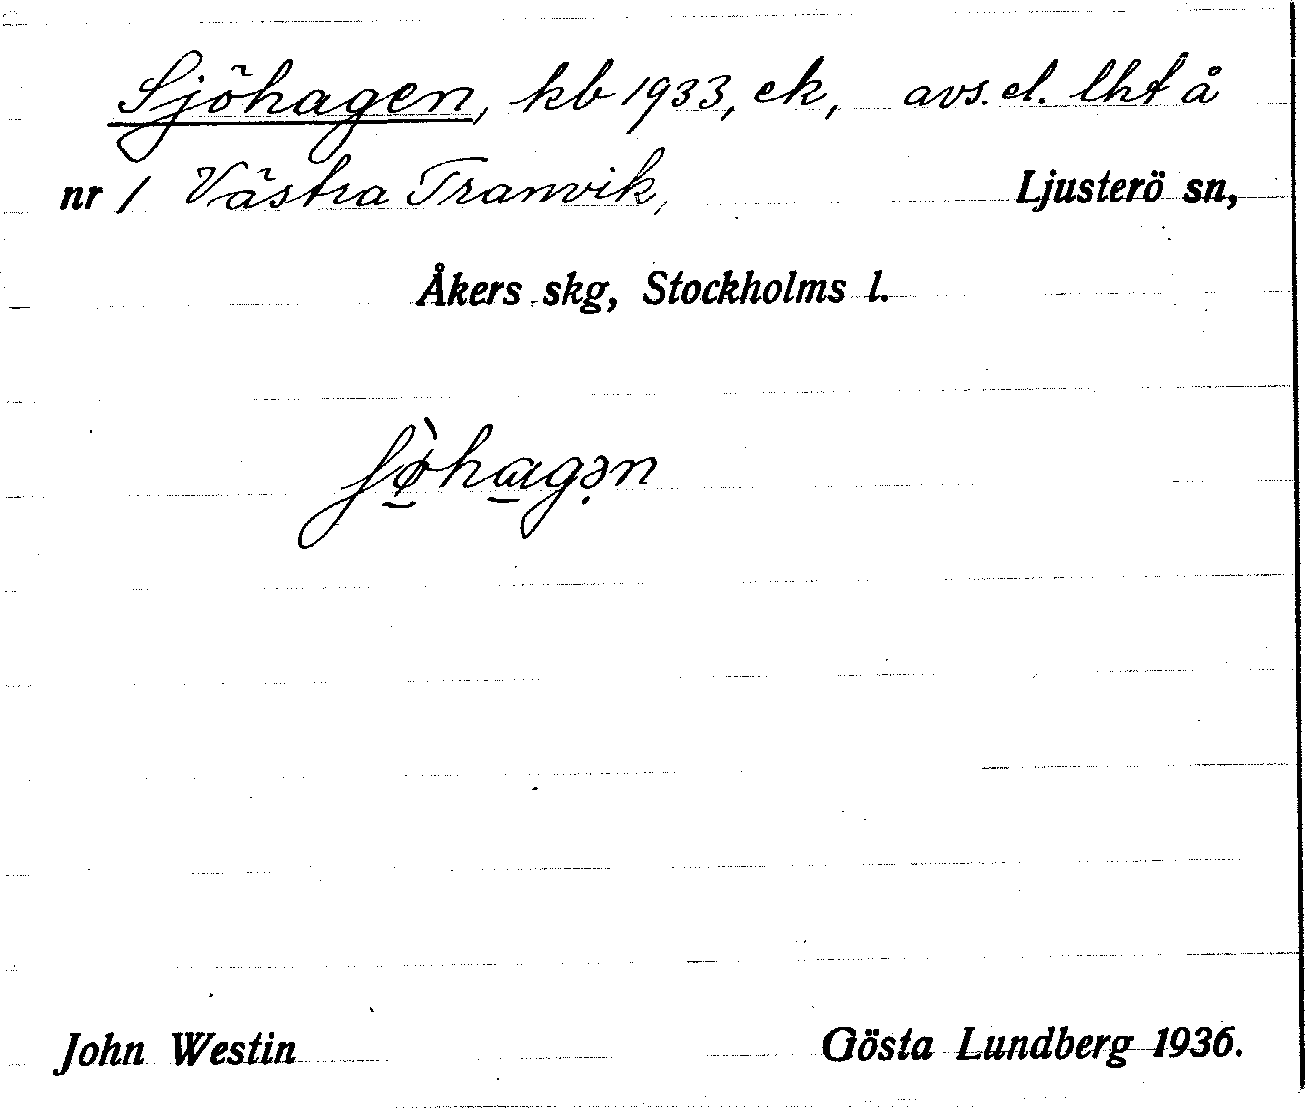 Sjöhagen, kb 1933, ek, avs. el. lht å
nr 1 Västra Tranvik, Ljusterö sn,
Åkers skg, Stockholms l.
ʃø̀hagən
John Westin Gösta Lundberg 1936.